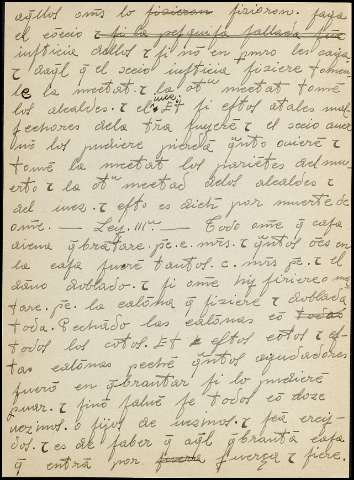 aq̃llos om̃s lo fizieron fizieron. faga
el cõceio τ si la pesquisa fallada fue
iusticia dellos τ si nõ en pmro les caya
τ daq̃l q̃ el cõceio iusticia fiziere tomen
le la meetat. τ la ot̃ meetat tomẽ
los alcaldes. τ el iuez. Et si estos atales mal
fechores dela tr̃a fuyerẽ τ el
nõ los pudiere pierdã q̃nto ouierẽ τ
tomẽ la meetat los pariẽtes del mu
erto τ la ot̃ meetad delos alcaldes τ
del iuez. τ esto es dicho por muerte de
om̃e. — Ley. IIIª — Todo om̃e q̃ casa
aiena q̃brãtare. p̃c. c. mr̃s. τ q̃ntos om̃s en
la casa fuerẽ tantos. c. mr̃s p̃c. τ el
dano doblado. τ si om̃e hy firiere o ma
tare. p̃c. la calõna q̃ fiziere τ doblada
toda. Pechãdo las calõnas cõ todas
todos los cotos. Et estos cotos τ es
tas calõnas pechẽ q̃ntos agudadores
fuerõ en q̃brantar si lo pudierẽ
puar. τ sinõ saluẽ se todos cõ doze
uezinos. o fijos de uezinos. τ seã creỹ
dos. τ es de saber q̃ aq̃l q̃brantã casa
q̃ entrã por fuerça fuerça τ fiere.